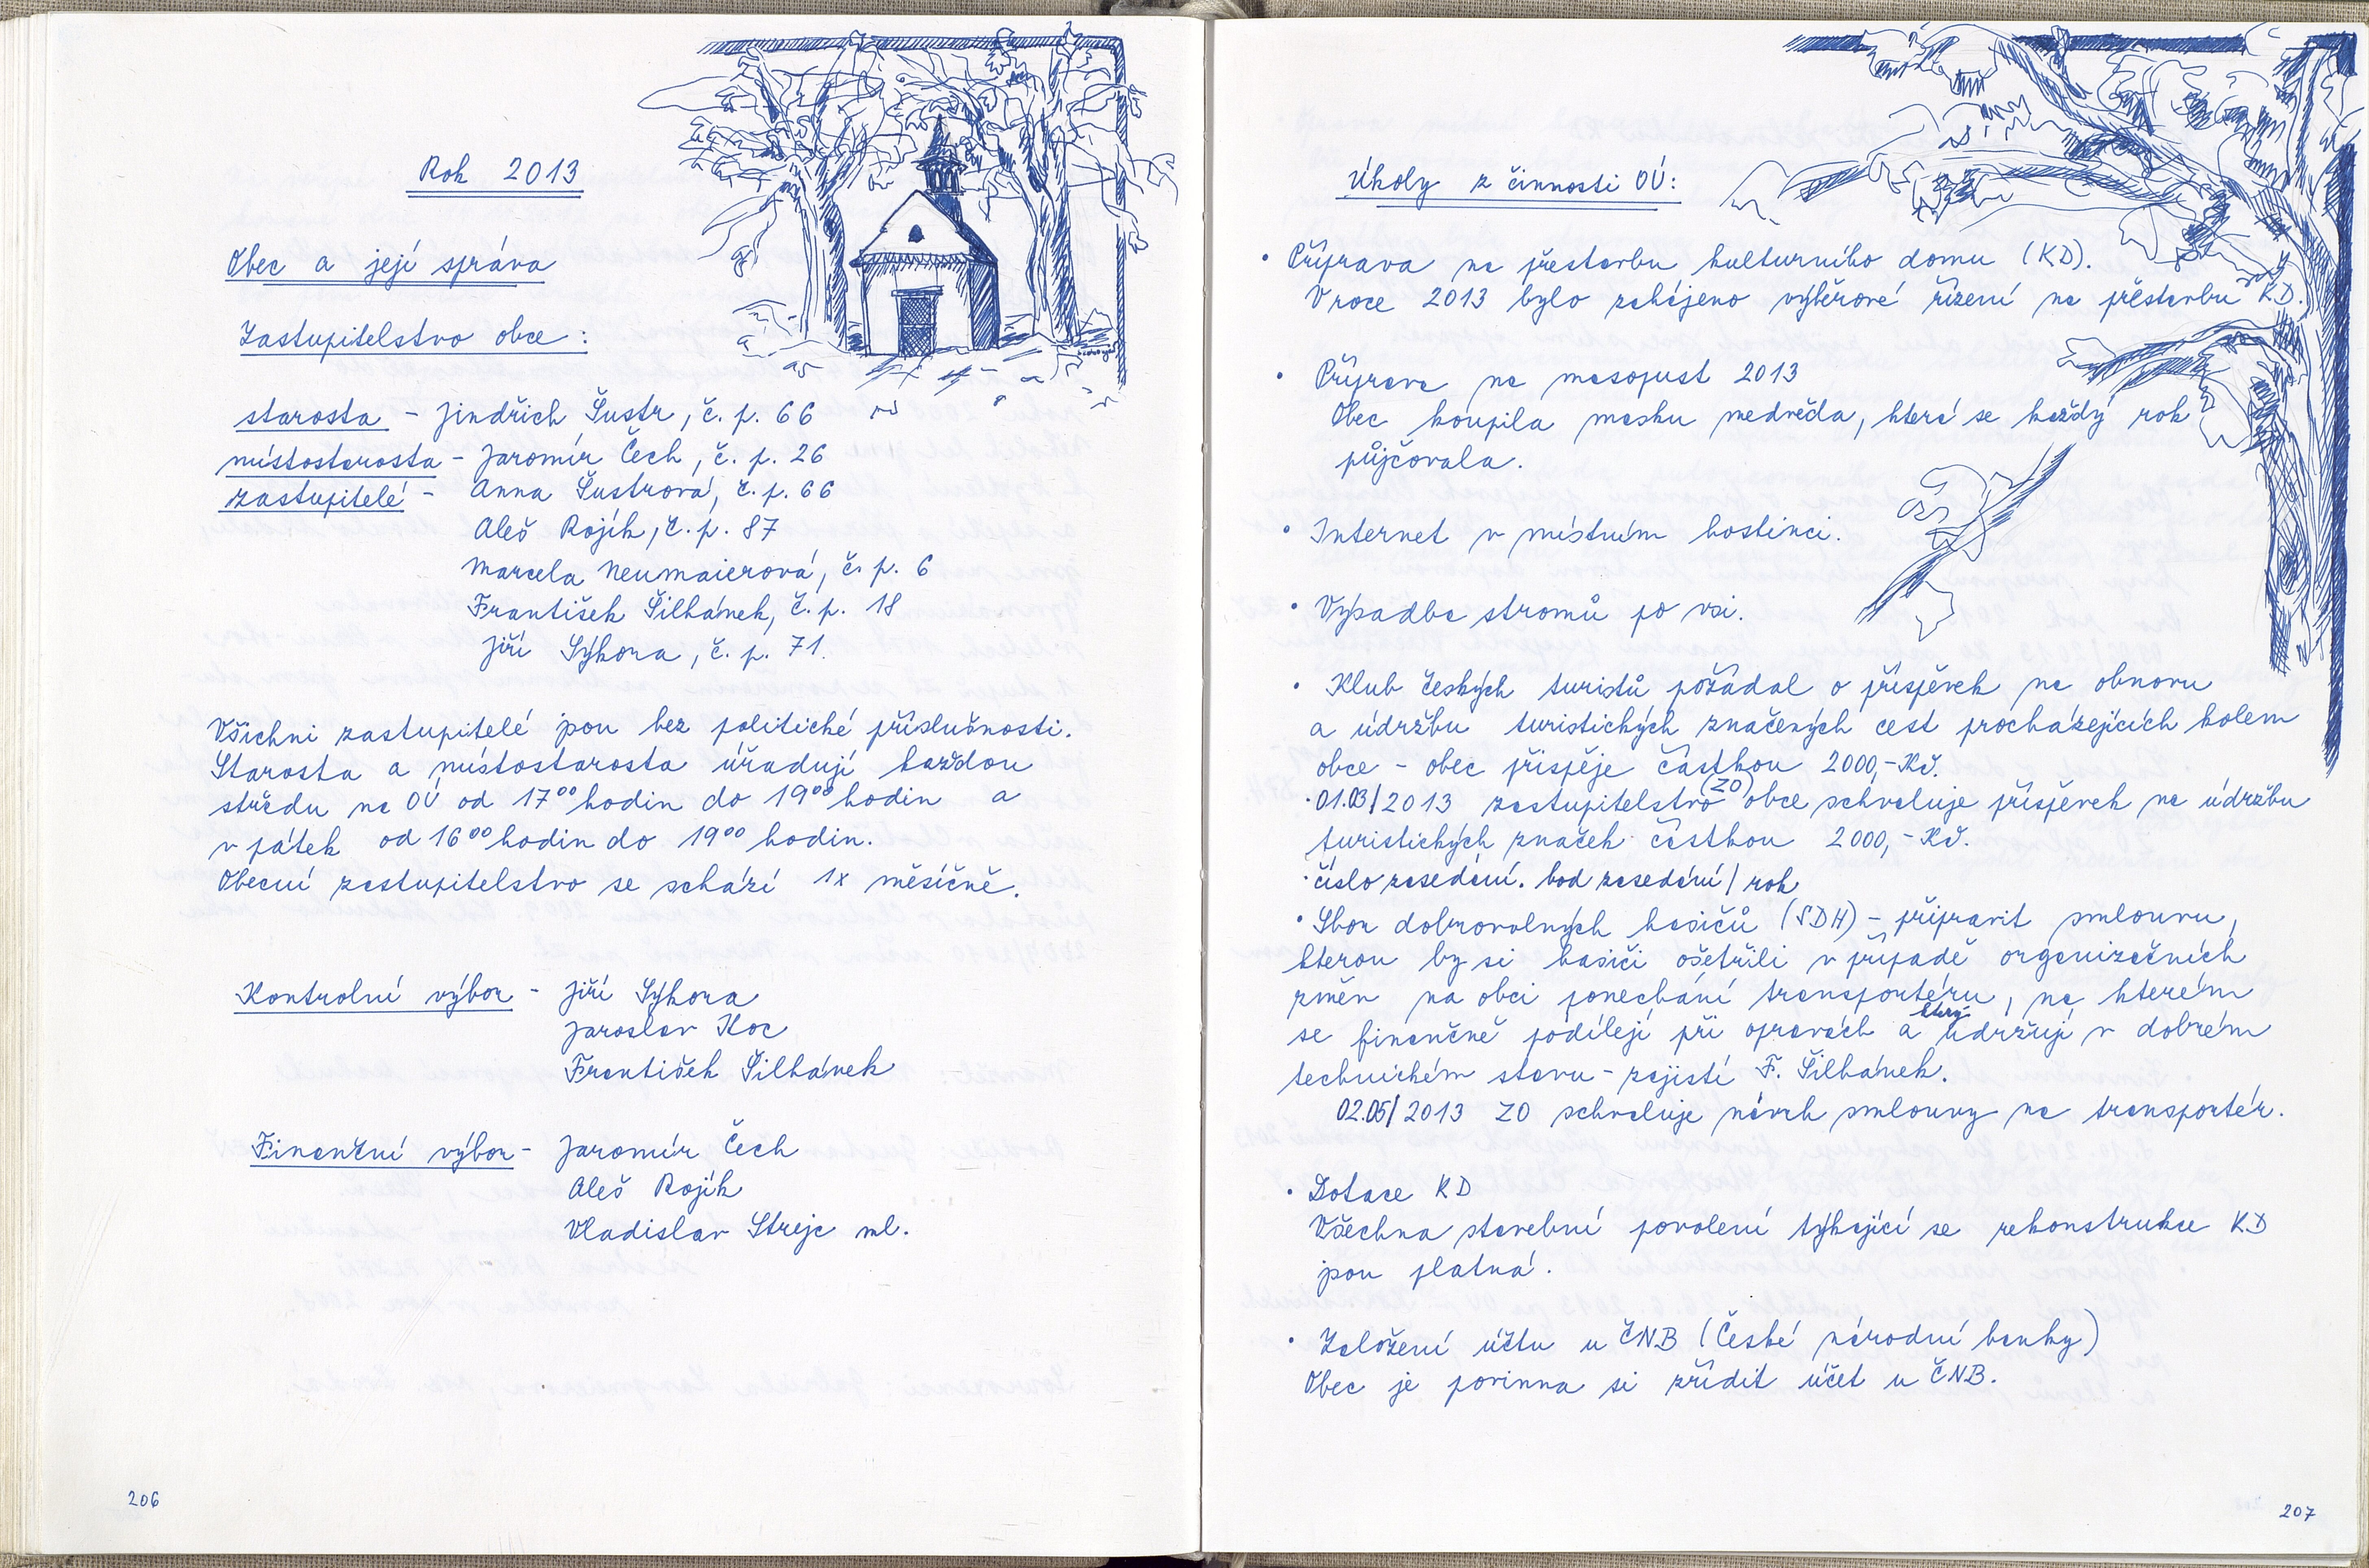 Rok 2013
Obec a její správa
Zastupitelstvo obce :
starosta - Jindřich Šustr, č. p. 66
místostarosta - Jaromír Čech, č. p. 26
zastupitelé - Anna Šustrová, č. p. 66
Aleš Rojík, č. p. 87
Marcela Neumaierová, č. p. 6
František Šilhánek, č. p. 18
Jiří Sýkora, č. p. 71.
Všichni zastupitelé jsou bez politické příslušnosti.
Starosta a místostarosta úřadují každou
středu na OÚ od 17⁰⁰ hodin do 19⁰⁰ hodin a
v pátek od 16⁰⁰ hodin do 19⁰⁰ hodin.
Obecní zastupitelstvo se schází 1x měsíčně.
Kontrolní výbor - Jiří Sýkora
Jaroslav Koc
František Šilhánek
Finanční výbor - Jaromír Čech
Aleš Rojík
Vladislav Strejc ml.
206
Úkoly z činnosti OÚ:
• Příprava na přestavbu kulturního domu (KD).
V roce 2013 bylo zahájeno výběrové řízení na přestavbu KD.
• Příprava na masopust 2013
Obec koupila masku medvěda, která se každý rok
půjčovala.
• Internet v místním hostinci.
• Výsadba stromů po vsi.
• Klub českých turistů požádal o příspěvek na obnovu
a údržbu turistických značených cest procházejících kolem
obce - obec přispěje částkou 2000,- Kč.
• 01.03/2013 zastupitelstvo (ZO) obce schvaluje příspěvek na údržbu
turistických značek částkou 2000,- Kč.
• číslo zasedání. bod zasedání / rok
• Sbor dobrovolných hasičů (SDH) - připravit smlouvu,
kterou by si hasiči ošetřili v případě organizačních
změn na obci ponechání transportéru, na kterém
se finančně podílejí při opravách a který udržují v dobrém
technickém stavu - zajistí F. Šilhánek.
02.05/2013 ZO schvaluje návrh smlouvy na transportér.
• Dotace KD
Všechna stavební povolení týkající se rekonstrukce KD
jsou platná.
• Založení účtu u ČNB (České národní banky)
Obec je povinna si zřídit účet u ČNB.
207